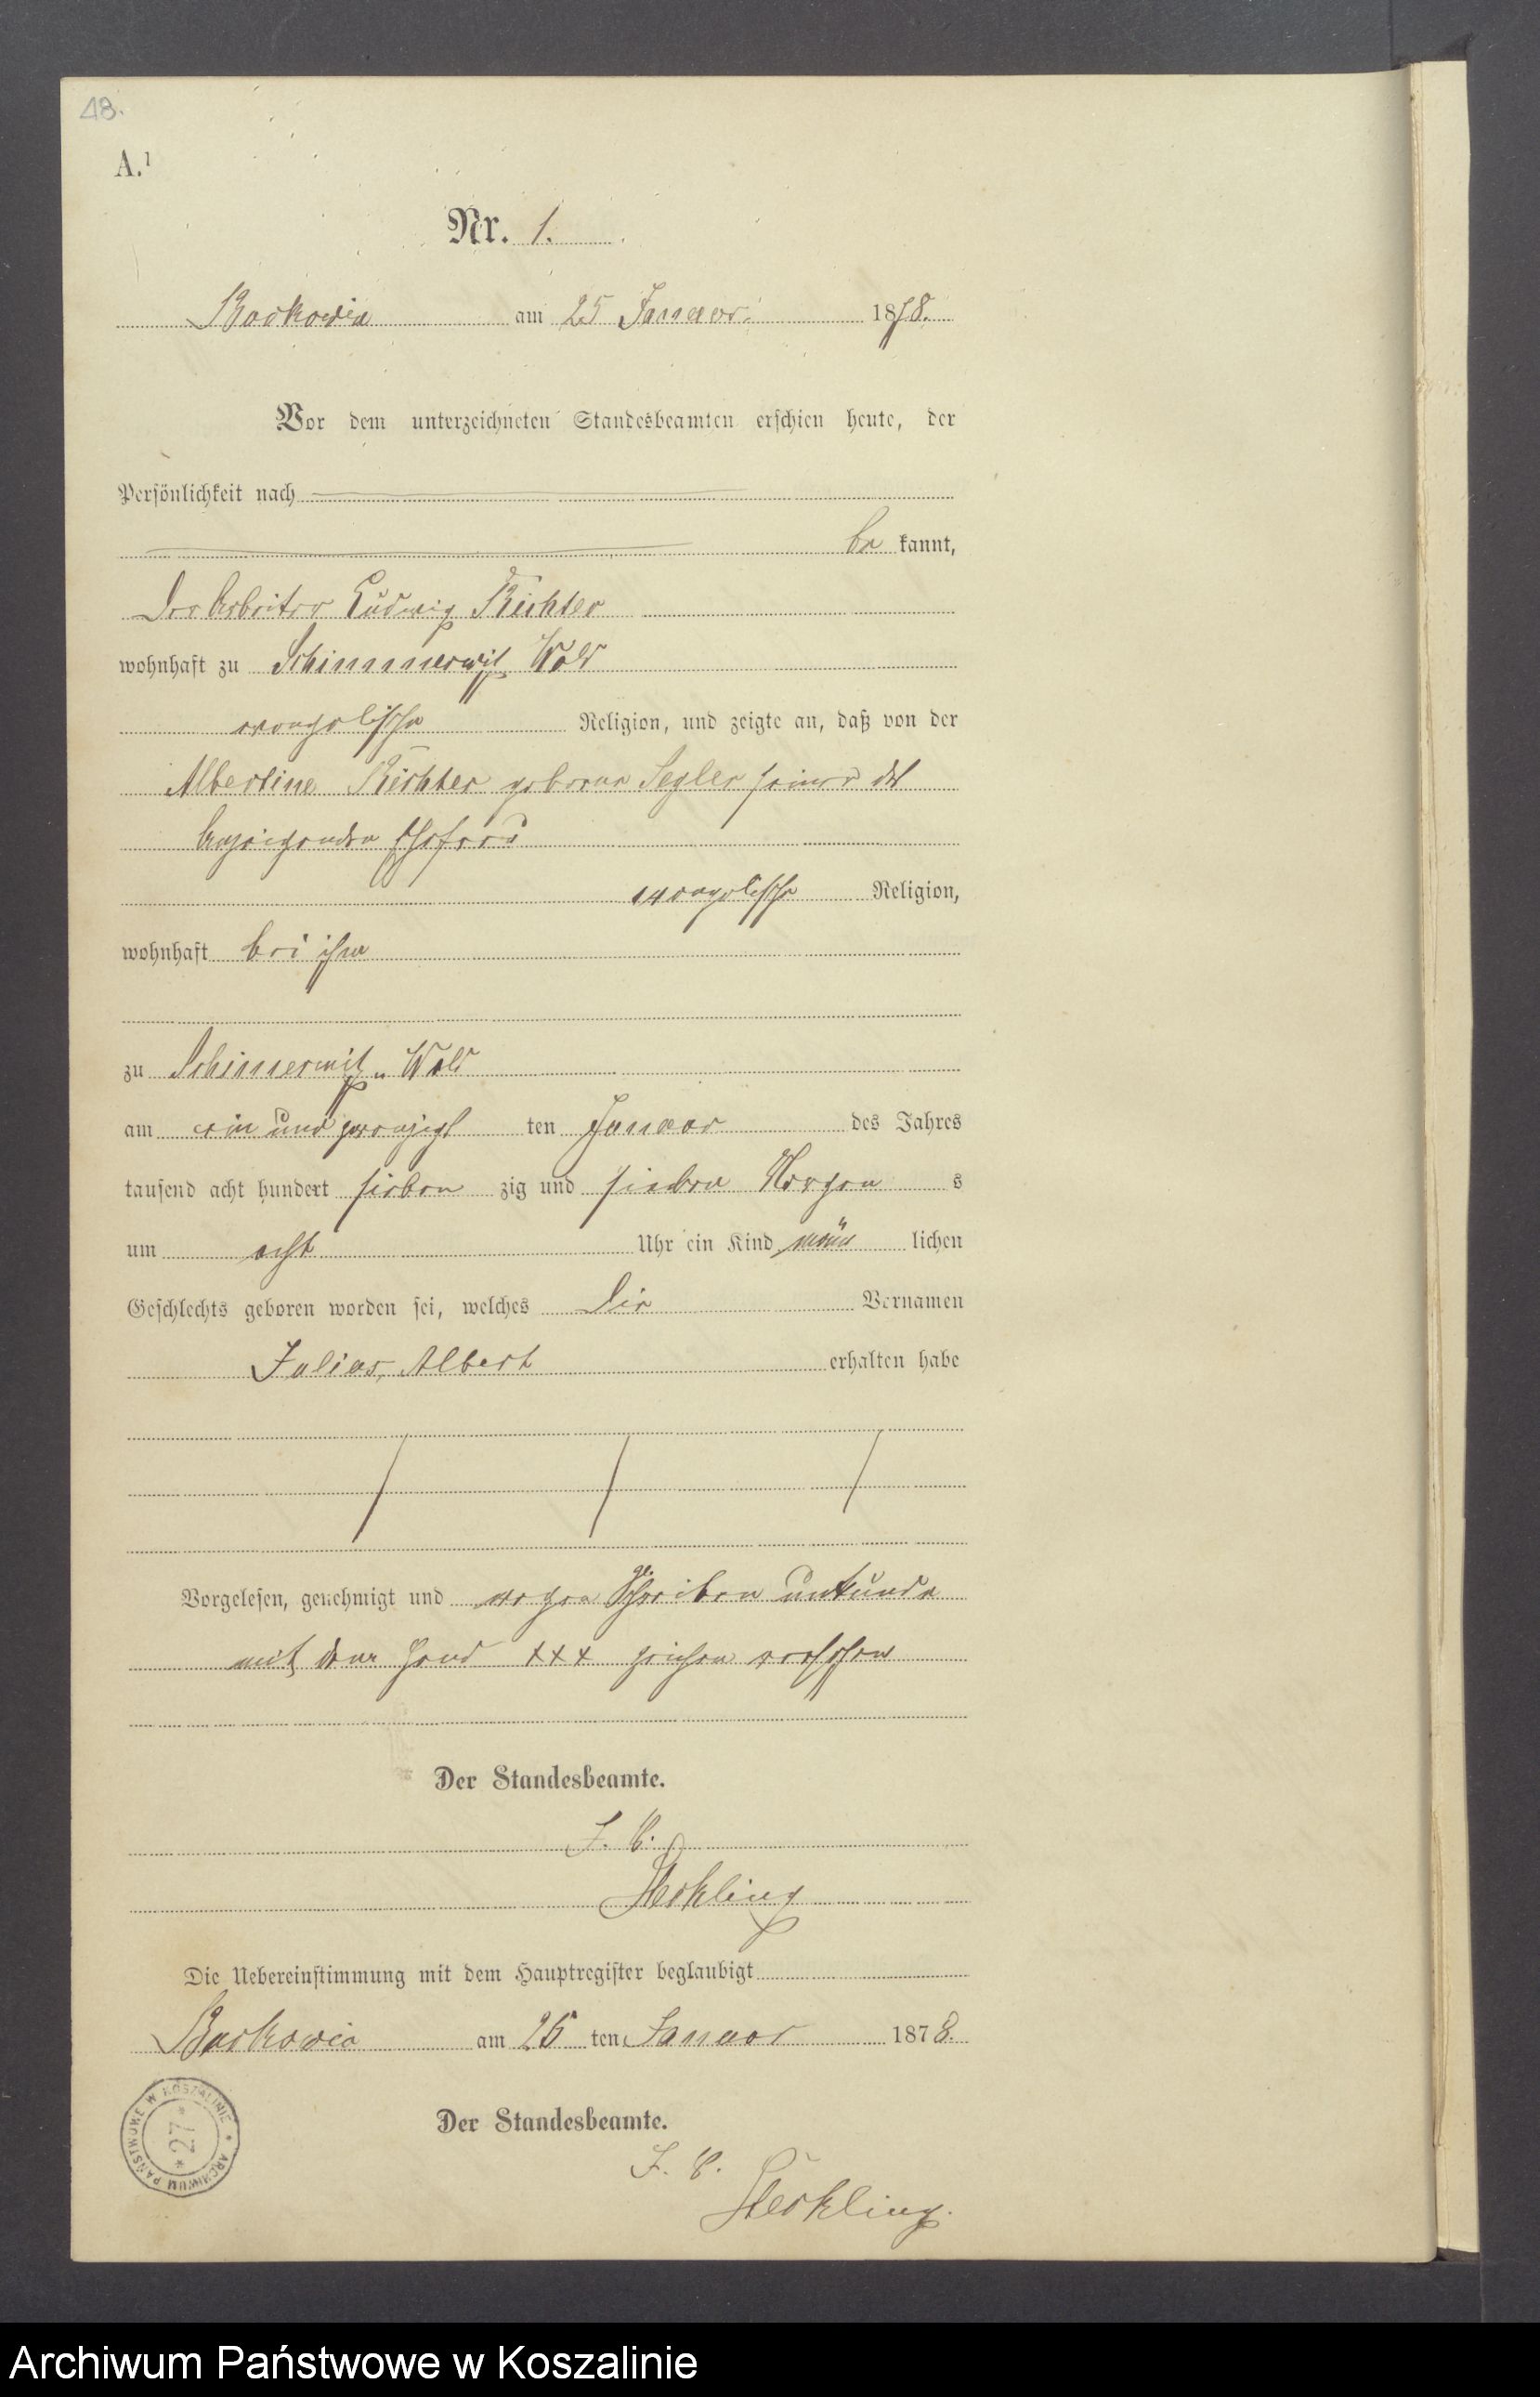 48.
A.¹
Nr. 1.
Boskowia am 25 Januar. 1878.
Vor dem unterzeichneten Standesbeamten erschien heute, der
Persönlichkeit nach
be kannt,
Der Arbeiter Ludwig Richter
wohnhaft zu Schimmerwitz Wold
evangelischer Religion, und zeigte an, daß von der
Albertine Richter geborene Segler seiner des
Anzeigenden Ehefrau
evangelischer Religion,
wohnhaft bei ihm
zu Schimerwitz Wold
am ein und zwanzigst ten Januar des Jahres
tausend acht hundert sieben zig und Morgen s
um acht Uhr ein Kind männ lichen
Geschlechts geboren worden sei, welches die Vornamen
Julius, Albert erhalten habe
Vorgelesen, genehmigt und wegen Schreiben unkunde
mit dem Hand xxx Zeichen versehen
Der Standesbeamte.
I. V.
Heckling
Die Uebereinstimmung mit dem Hauptregister beglaubigt
am 25 ten Januar 1878.
Der Standesbeamte.
I. V.
Heckling.
ARCHIWUM PAŃSTWOWE W KOSZALINIE
* 27 *
Archiwum Państwowe w Koszalinie